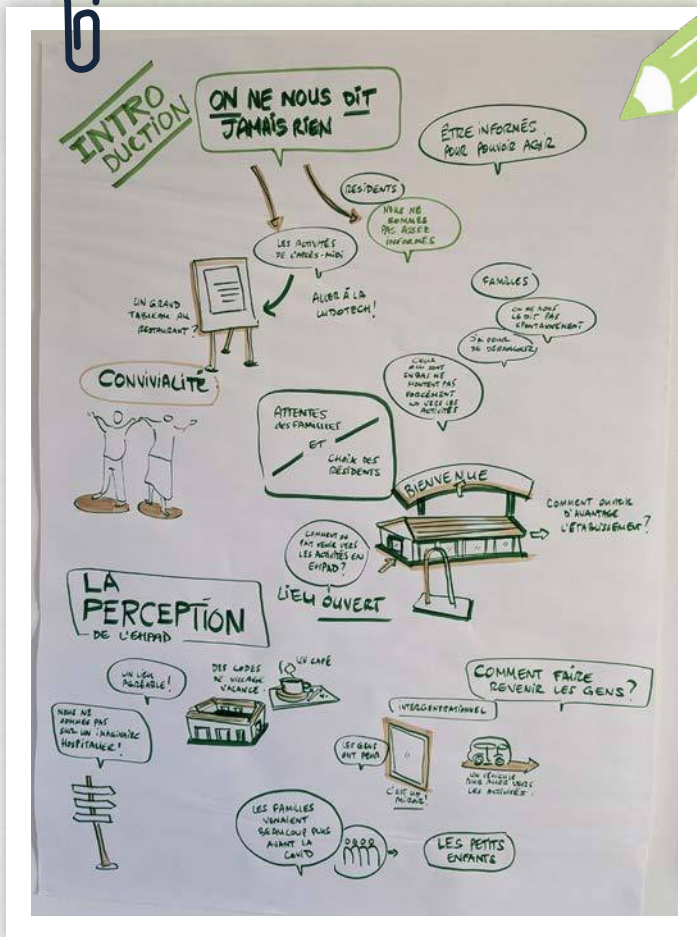 INTRO
DUCTION
ON NE NOUS DIT
JAMAIS RIEN
ÊTRE INFORMÉS
POUR POUVOIR AGIR
RÉSIDENTS
NOUS NE
SOMMES
PAS ASSEZ
INFORMÉS
LES ACTIVITÉS
DE L'APRÈS-MIDI
UN GRAND
TABLEAU AU
RESTAURANT?
ALLER À LA
LUDOTECH!
FAMILLES
ON NE NOUS
LE DIT PAS
SPONTANNÉMENT
J'AI PEUR
DE DÉRANGER
CEUX
QUI SONT
EN BAS NE
MONTENT PAS
FORCÉMENT
VERS LES
ACTIVITÉS
CONVIVIALITÉ
ATTENTES
des FAMILLES
ET
CHOIX DES
RÉSIDENTS
BIENVENUE
COMMENT OUVRIR
D'AVANTAGE
L'ÉTABLISSEMENT?
COMMENT ON
FAIT VENIR VERS
LES ACTIVITÉS EN
EHPAD?
LIEU OUVERT
LA
PERCEPTION
DE L'EHPAD
UN LIEU
AGRÉABLE!
DES CODES
DE VILLAGE
VACANCE
UN CAFÉ
NOUS NE
SOMMES PAS
SUR UN IMAGINAIRE
HOSPITALIER!
COMMENT FAIRE
REVENIR LES GENS?
INTERGÉNÉRATIONNEL
LES GENS
ONT PEUR
C'EST UN
MIROIR!
UN VÉHICULE
POUR ALLER VERS
LES ACTIVITÉS.
LES FAMILLES
VENAIENT
BEAUCOUP PLUS
AVANT LA
COVID
LES PETITS
ENFANTS